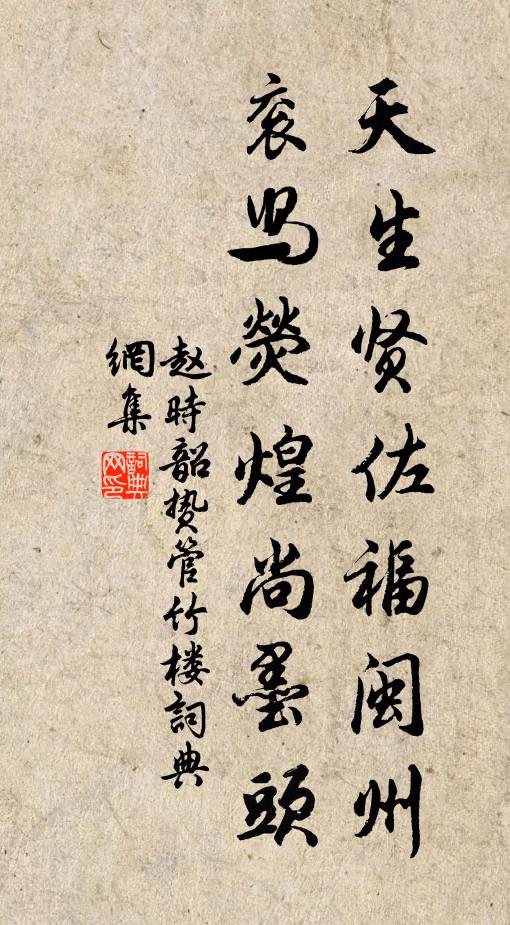 天生贤佐福闽州
衮舄熒煌尚墨頭
赵時韶贽管竹楼詞典
網集
詞典网印